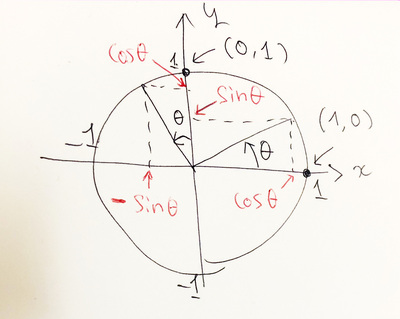 y
cosθ
1
(0,1)
sinθ
θ
(1,0)
-1
θ
x
- sinθ
cosθ
1
-1